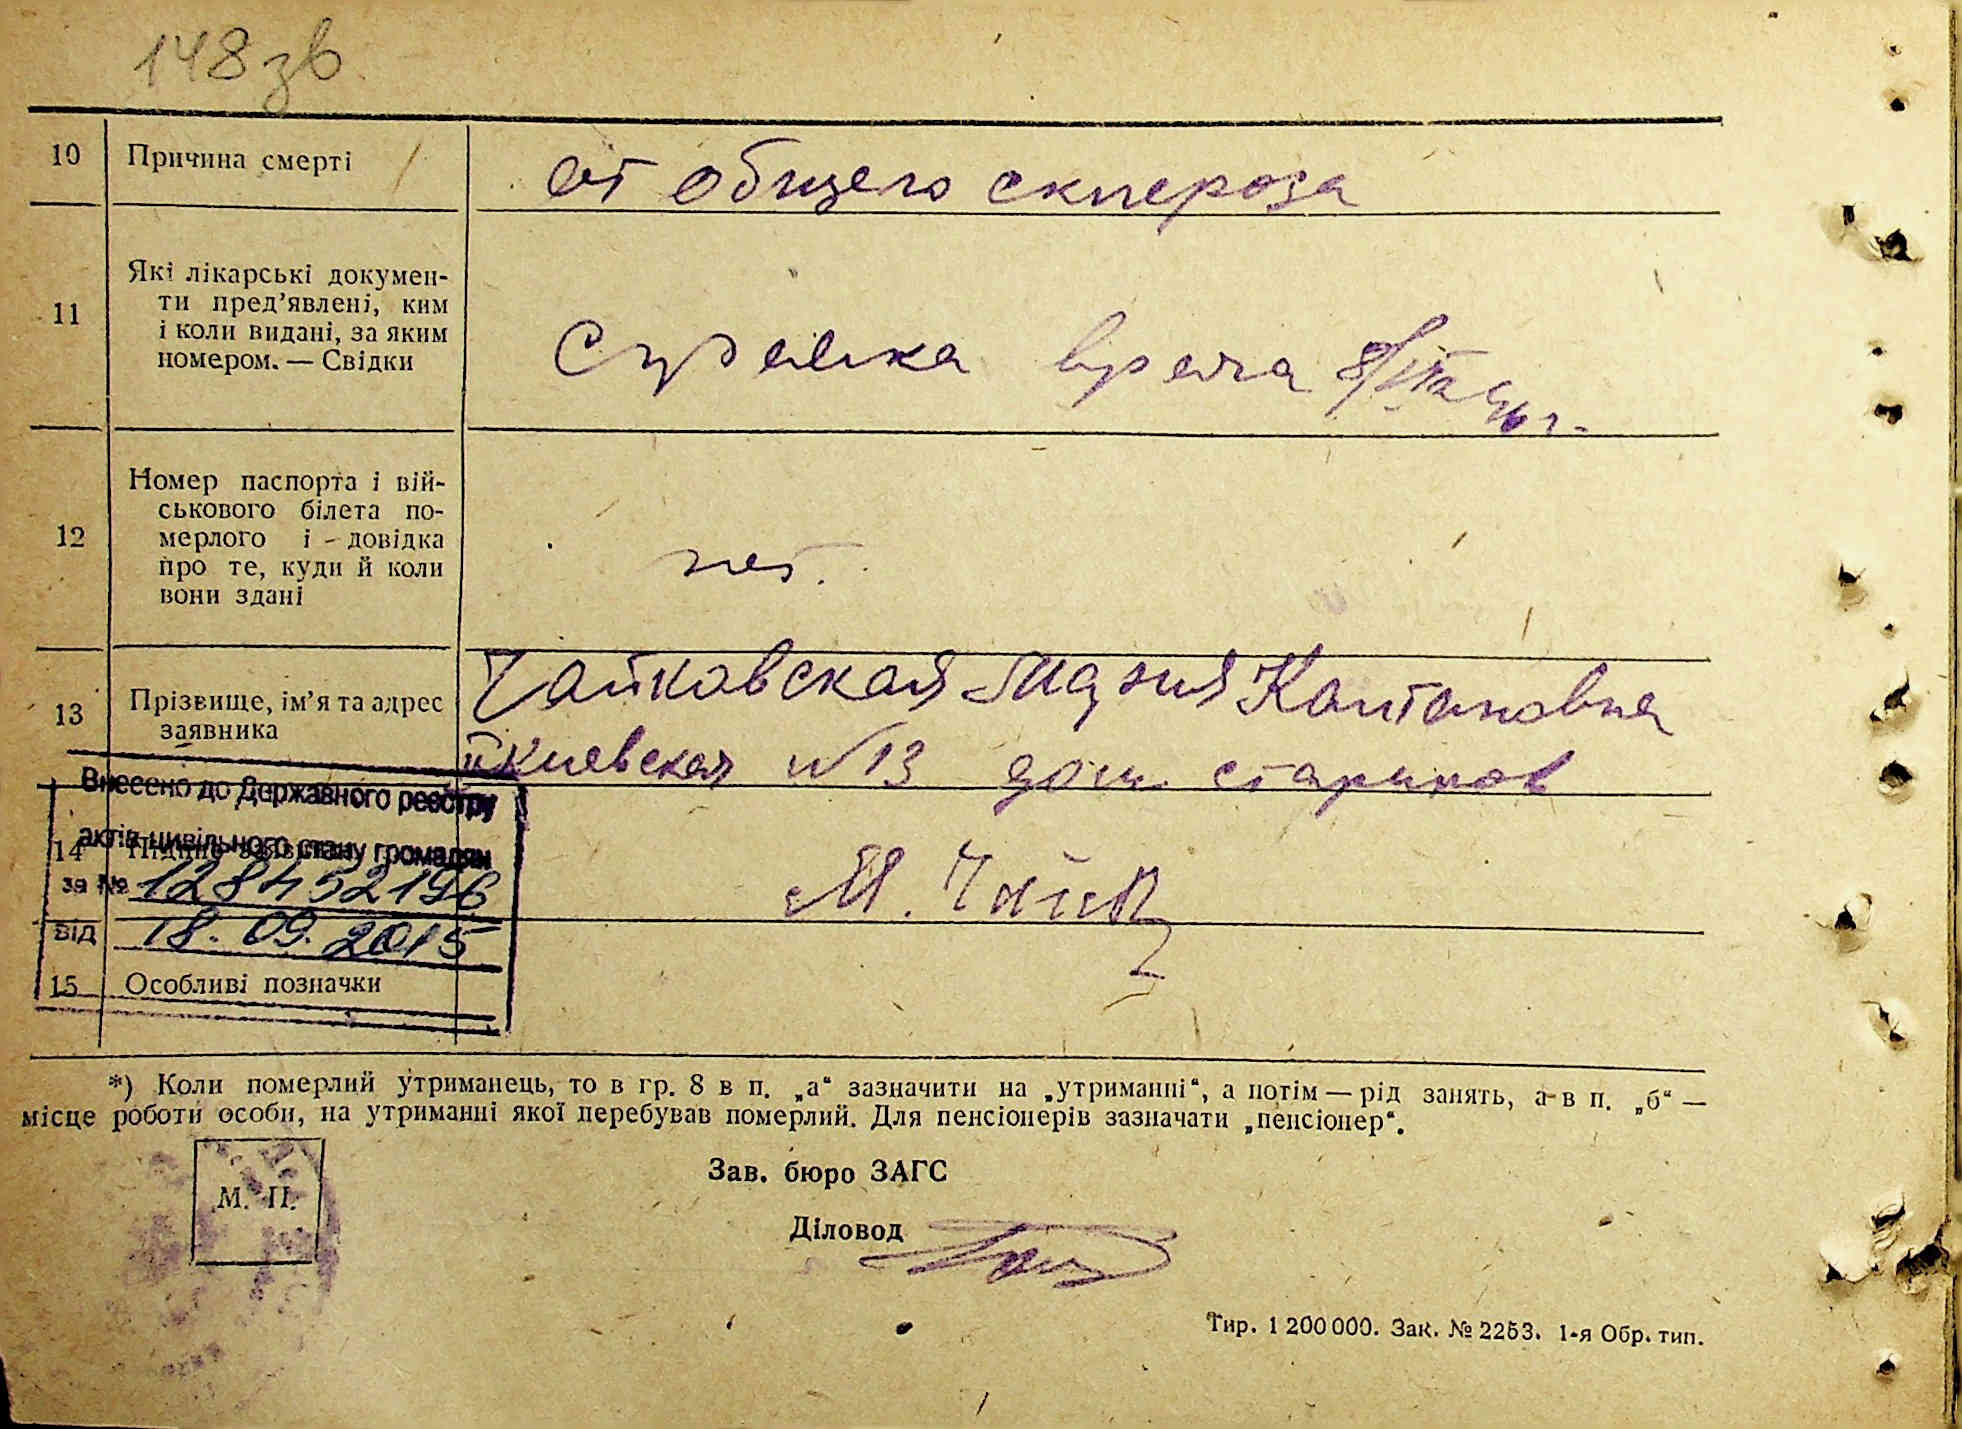 148зв
10 Причина смерті
от общего склероза
11 Які лікарські докумен-
ти пред’явлені, ким
і коли видані, за яким
номером. — Свідки
Справка врача 8/VIII
12 Номер паспорта і вій-
ськового білета по-
мерлого і - довідка
про те, куди й коли
вони здані
нет.
13 Прізвище, ім’я та адрес
заявника
Чайковская Капитоновна
Киевская N 13 дом стариков
Внесено до Державного реєстру
актів цивільного стану громадян
14 Підпис заявника
за № 1284
від 18.09.2015
М. Чайк
15 Особливі позначки
*) Коли померлий утриманець, то в гр. 8 в п. „а“ зазначити на „утриманні“, а потім — рід занять, а в п. „б“ —
місце роботи особи, на утриманні якої перебував померлий. Для пенсіонерів зазначати „пенсіонер“.
М. П.
Зав. бюро ЗАГС
Діловод
Тир. 1 200 000. Зак. № 2253. 1-я Обр. тип.